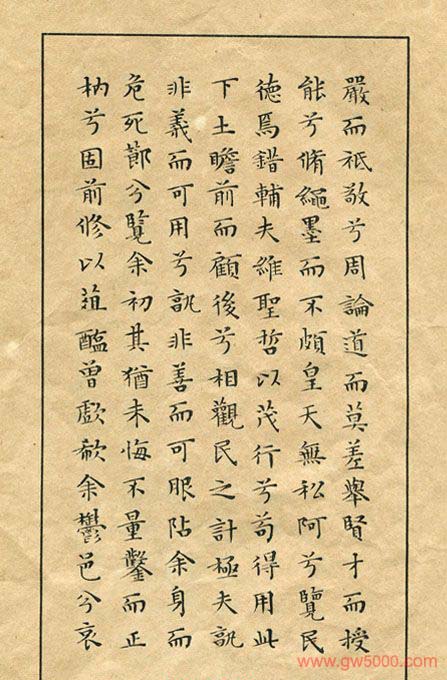 嚴而祗敬兮周論道而莫差舉賢才而授
能兮脩繩墨而不頗皇天無私阿兮覽民
德焉錯輔夫維聖哲以茂行兮苟得用此
下土瞻前而顧後兮相觀民之計極夫孰
非義而可用兮孰非善而可服阽余身而
危死節兮覽余初其猶未悔不量鑿而正
枘兮固前修以菹醢曾歔欷余鬱邑兮哀
www.gw5000.com